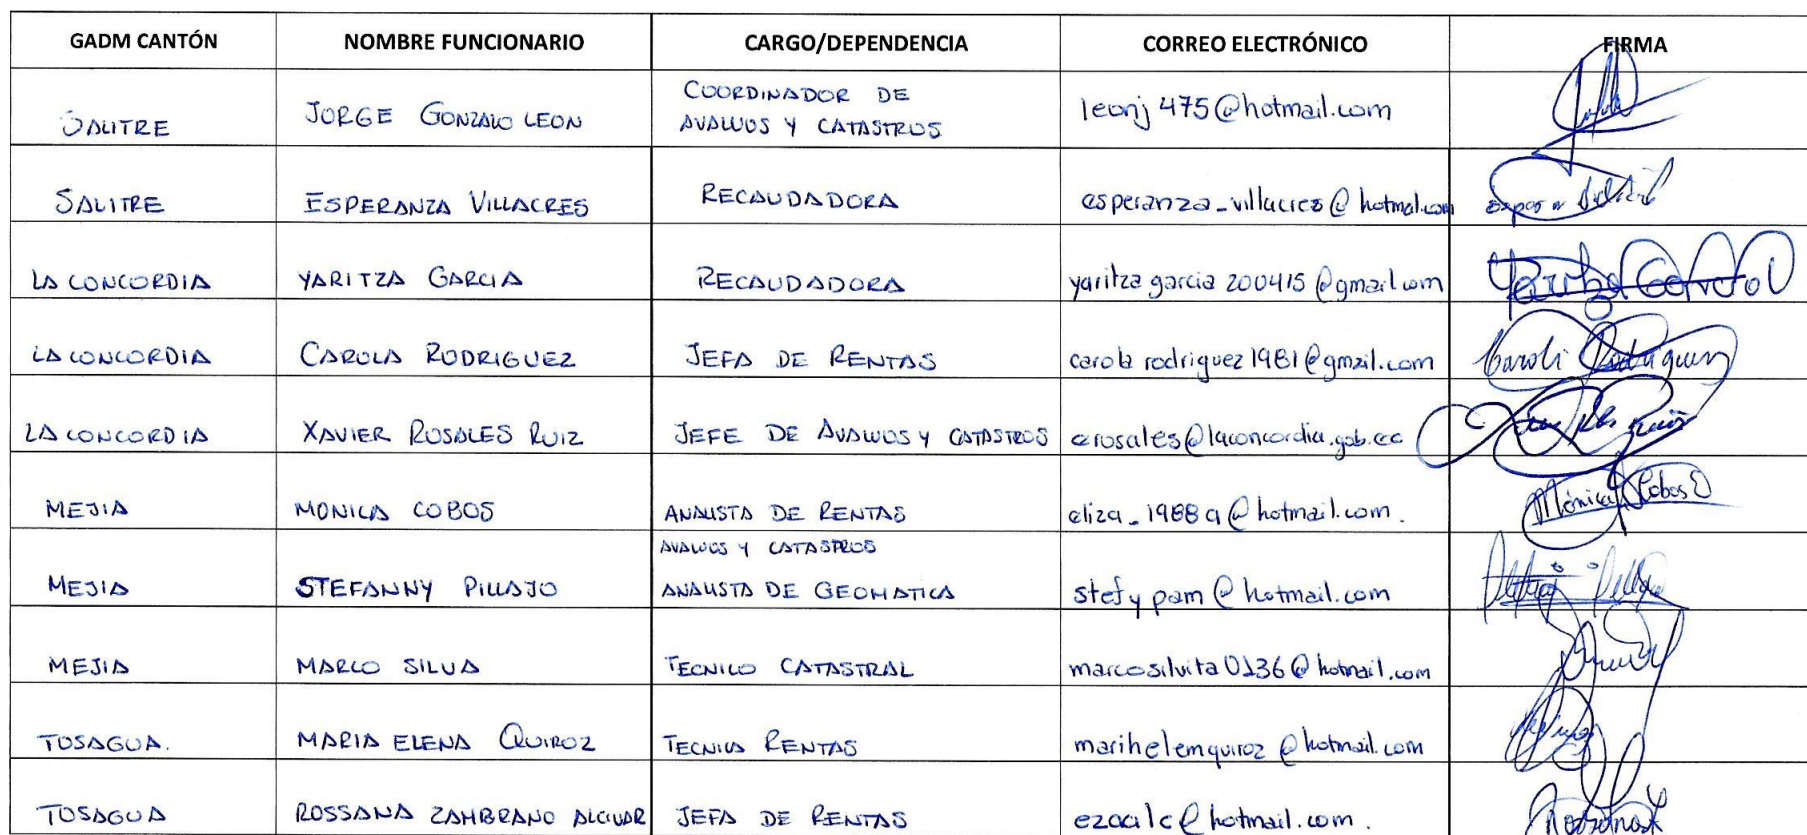 GADM CANTÓN NOMBRE FUNCIONARIO CARGO/DEPENDENCIA CORREO ELECTRÓNICO FIRMA
SALITRE JORGE GONZALO LEON COORDINADOR DE AVALUOS Y CATASTROS leonj475@hotmail.com
SALITRE ESPERANZA VILLACRES RECAUDADORA esperanza_villacres@hotmail.com
LA CONCORDIA YARITZA GARCIA RECAUDADORA yaritzagarcia200415@gmail.com Yaritza Garcia
LA CONCORDIA CAROLA RODRIGUEZ JEFA DE RENTAS carolarodriguez1981@gmail.com
LA CONCORDIA XAVIER ROSALES RUIZ JEFE DE AVALUOS Y CATASTROS erosales@laconcordia.gob.ec
MEJIA MONICA COBOS ANALISTA DE RENTAS eliza_1988a@hotmail.com. Mónica Cobos
AVALUOS Y CATASTROS
MEJIA STEFANNY PILLAJO ANALISTA DE GEOMATICA stefypam@hotmail.com
MEJIA MARCO SILVA TECNICO CATASTRAL marcosilvita0136@hotmail.com
TOSAGUA. MARIA ELENA QUIROZ TECNICA RENTAS marihelemquiroz@hotmail.com
TOSAGUA ROSSANA ZAMBRANO ALCIVAR JEFA DE RENTAS ezaalc@hotmail.com.